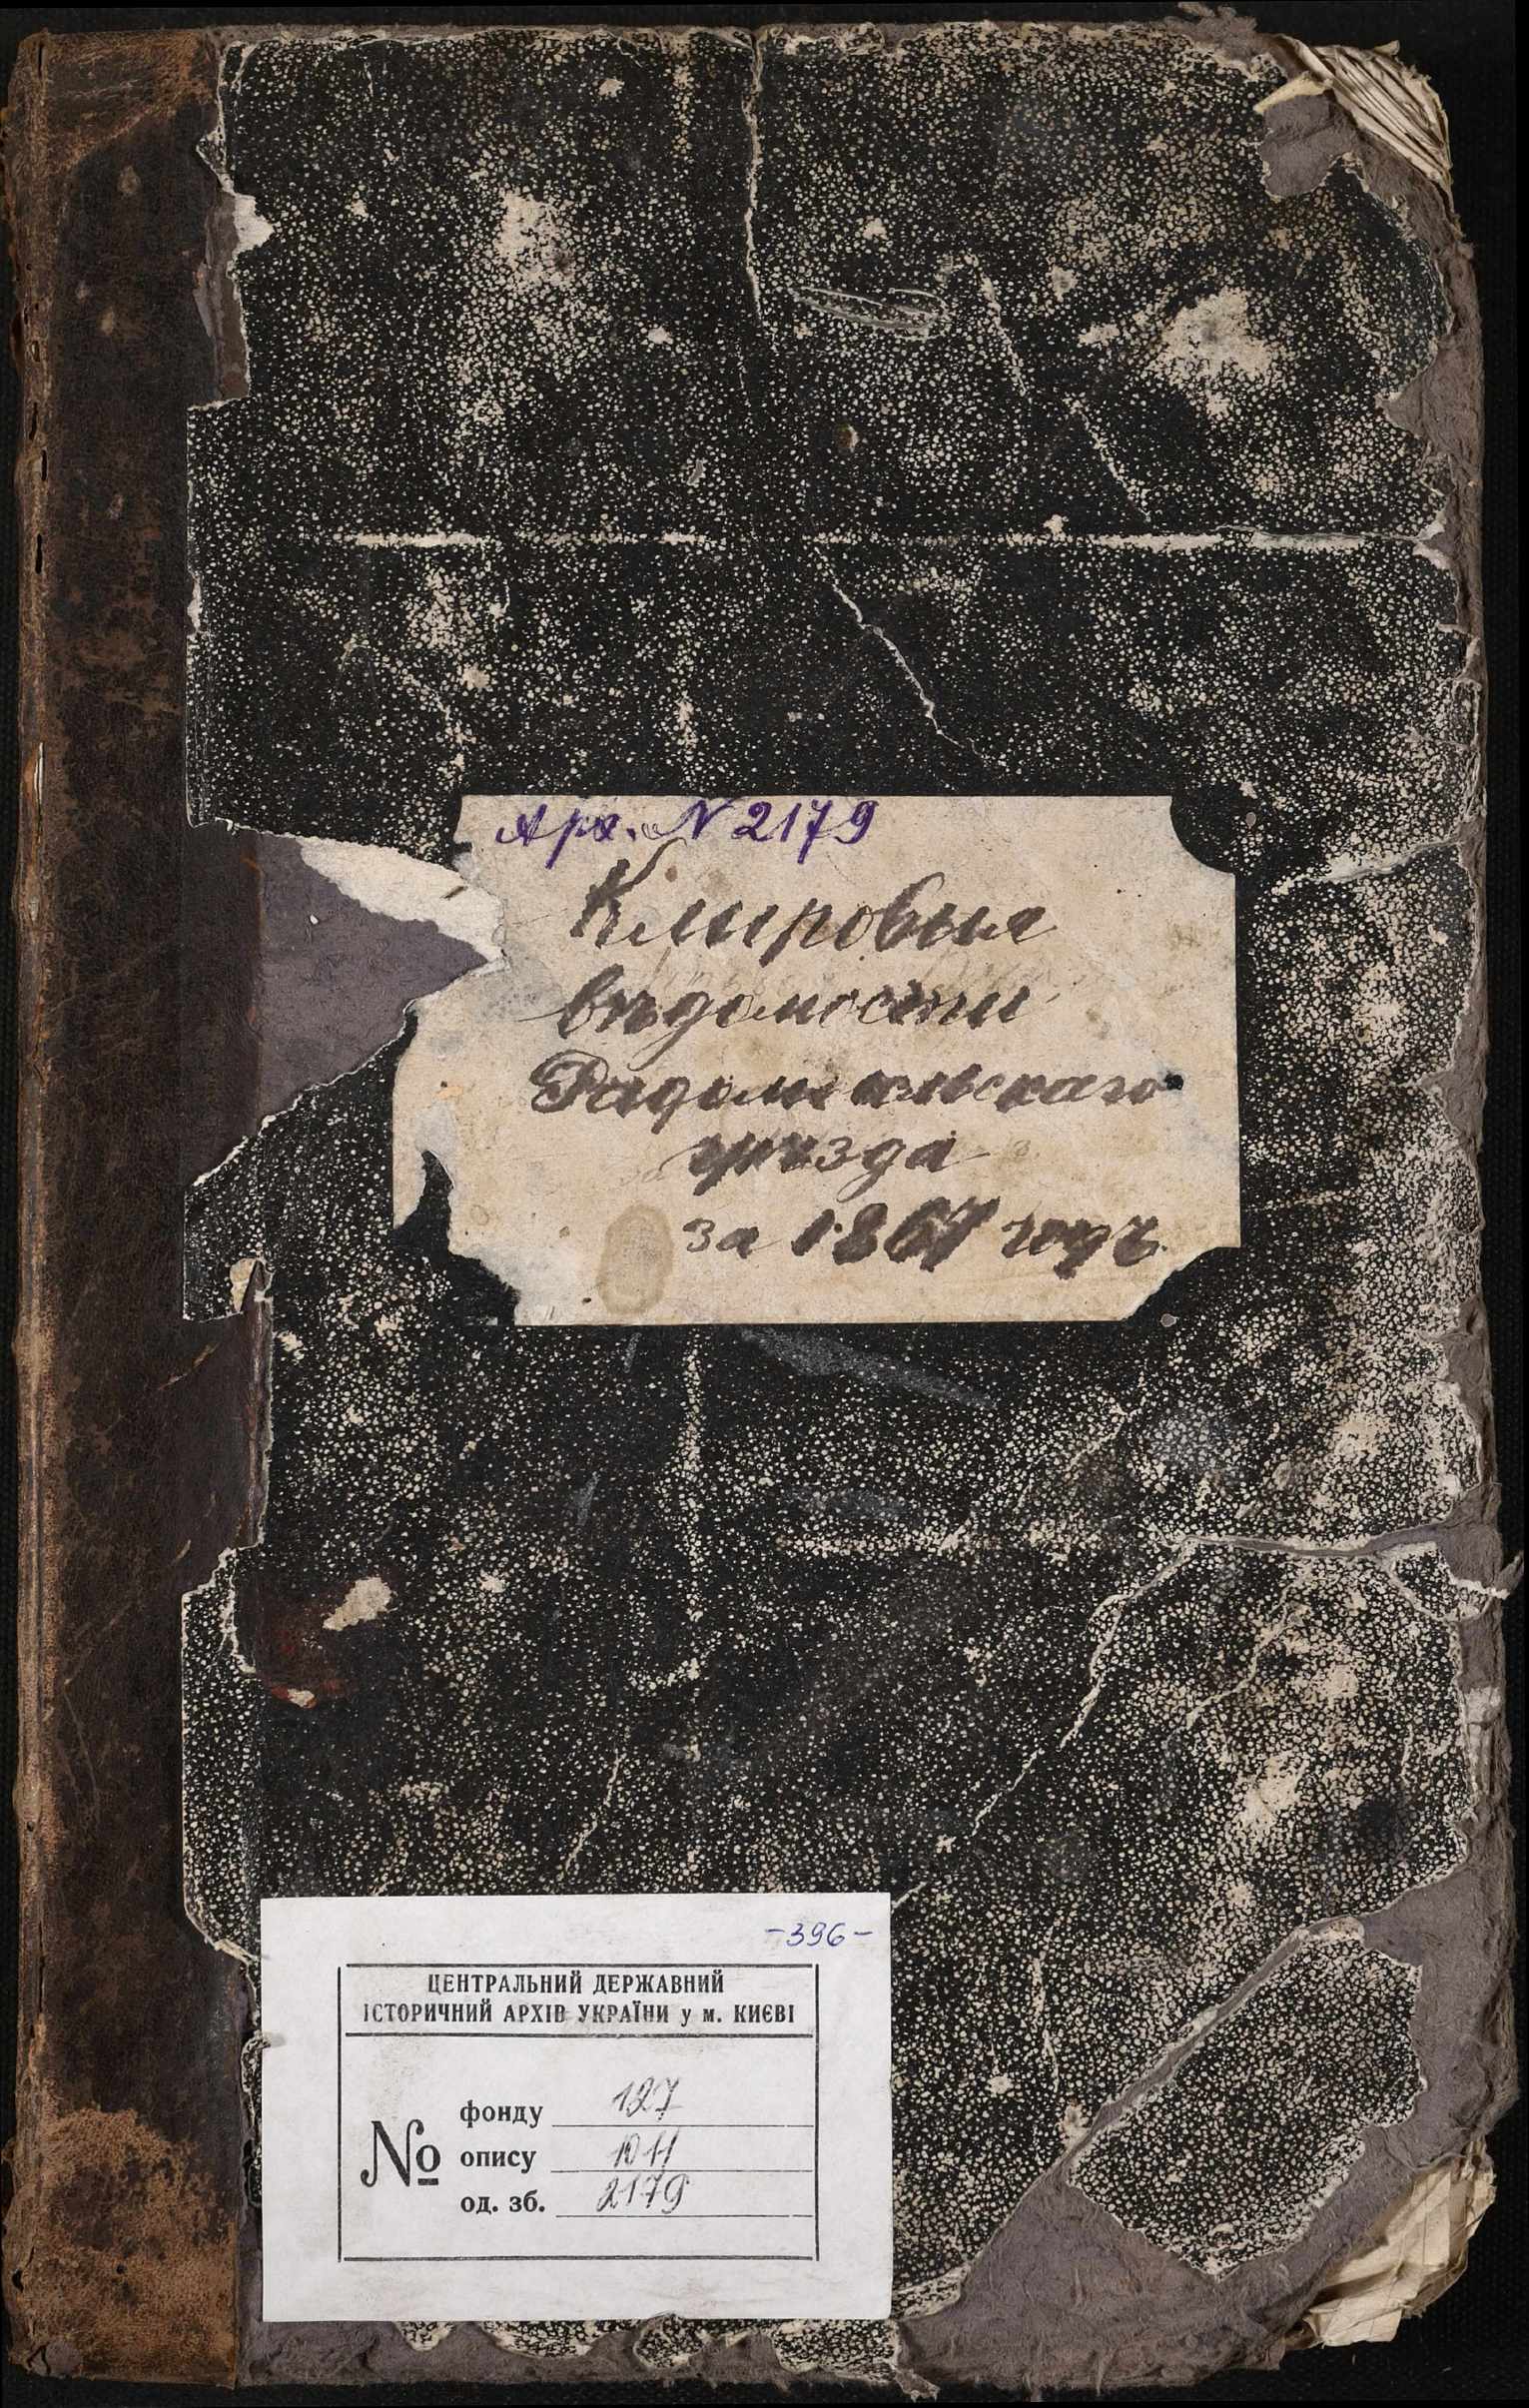 Арх. N 2179
Клировыя
вѣдомости
Радомысльскаго
уѣзда
за 1867 годъ
-396-
ЦЕНТРАЛЬНИЙ ДЕРЖАВНИЙ
ІСТОРИЧНИЙ АРХІВ УКРАЇНИ у м. КИЄВІ
№
фонду 127
опису 1011
од. зб. 2179